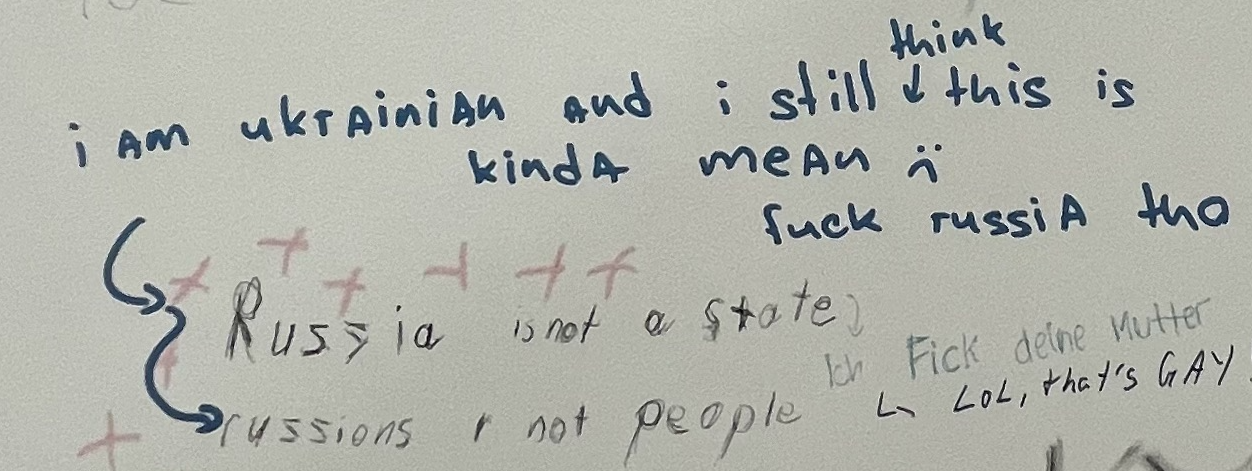 think
i am ukrainian and i still ↓ this is
kinda mean :(
fuck russia tho
Russia is not a state
russions r not people
Ich Fick deine Mutter
↳ LOL, that's GAY